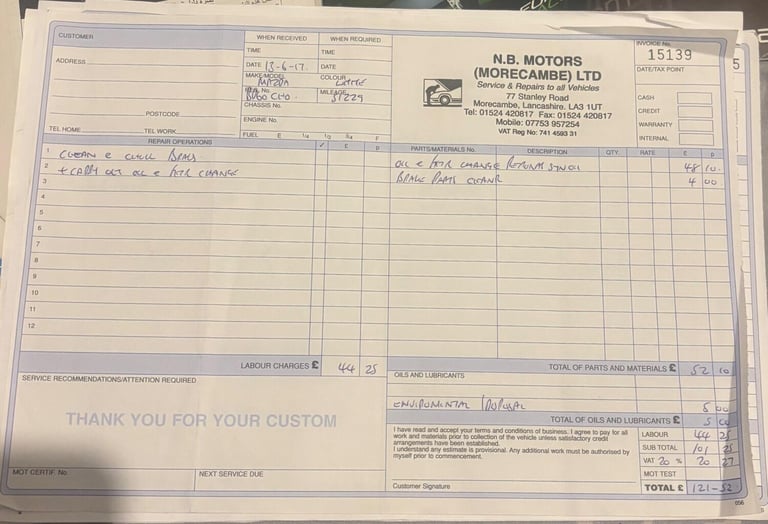 CUSTOMER
ADDRESS
POSTCODE
TEL HOME TEL WORK
WHEN RECEIVED WHEN REQUIRED
TIME TIME
DATE 13-6-17 DATE
MAKE/MODEL MAZDA COLOUR
REG. No. MILEAGE 51229
CHASSIS No.
ENGINE No.
FUEL E 1/4 1/2 3/4 F
N.B. MOTORS
(MORECAMBE) LTD
Service & Repairs to all Vehicles
77 Stanley Road
Morecambe, Lancashire. LA3 1UT
Tel: 01524 420817 Fax: 01524 420817
Mobile: 07753 957254
VAT Reg No: 741 4593 31
INVOICE No.
15139
DATE/TAX POINT
CASH
CREDIT
WARRANTY
INTERNAL
5
REPAIR OPERATIONS ✓ £ p
1 CLEAN & CHECK BRAKES
2 + CARRY OUT OIL & FILTER CHANGE
3
4
5
6
7
8
9
10
11
12
LABOUR CHARGES £ 44 25
PARTS/MATERIALS No. DESCRIPTION QTY. RATE £ p
OIL & FILTER CHANGE 48 10
BRAKE PARTS CLEANER 4 00
TOTAL OF PARTS AND MATERIALS £ 52 10
OILS AND LUBRICANTS
ENVIROMENTAL / DISPOSAL 5 00
TOTAL OF OILS AND LUBRICANTS £ 5 00
SERVICE RECOMMENDATIONS/ATTENTION REQUIRED
THANK YOU FOR YOUR CUSTOM
MOT CERTIF. No. NEXT SERVICE DUE
I have read and accept your terms and conditions of business. I agree to pay for all
work and materials prior to collection of the vehicle unless satisfactory credit
arrangements have been established.
I understand any estimate is provisional. Any additional work must be authorised by
myself prior to commencement.
Customer Signature
LABOUR 44 25
SUB TOTAL 101 25
VAT 20 % 20 27
MOT TEST
TOTAL £ 121-52
056